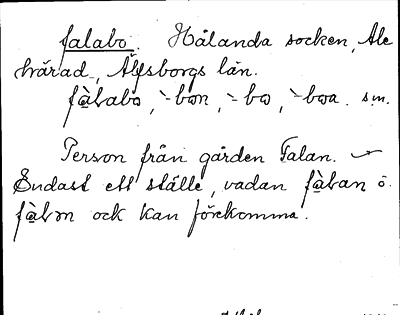 falabo. Hålanda socken, Ale
härad, Älfsborgs län.
fàlabo, -bon, -bo, -boa. sm.
Person från gården Falan.
Endast ett ställe, vadan fàlan o.
fàlon ock kan förekomma.